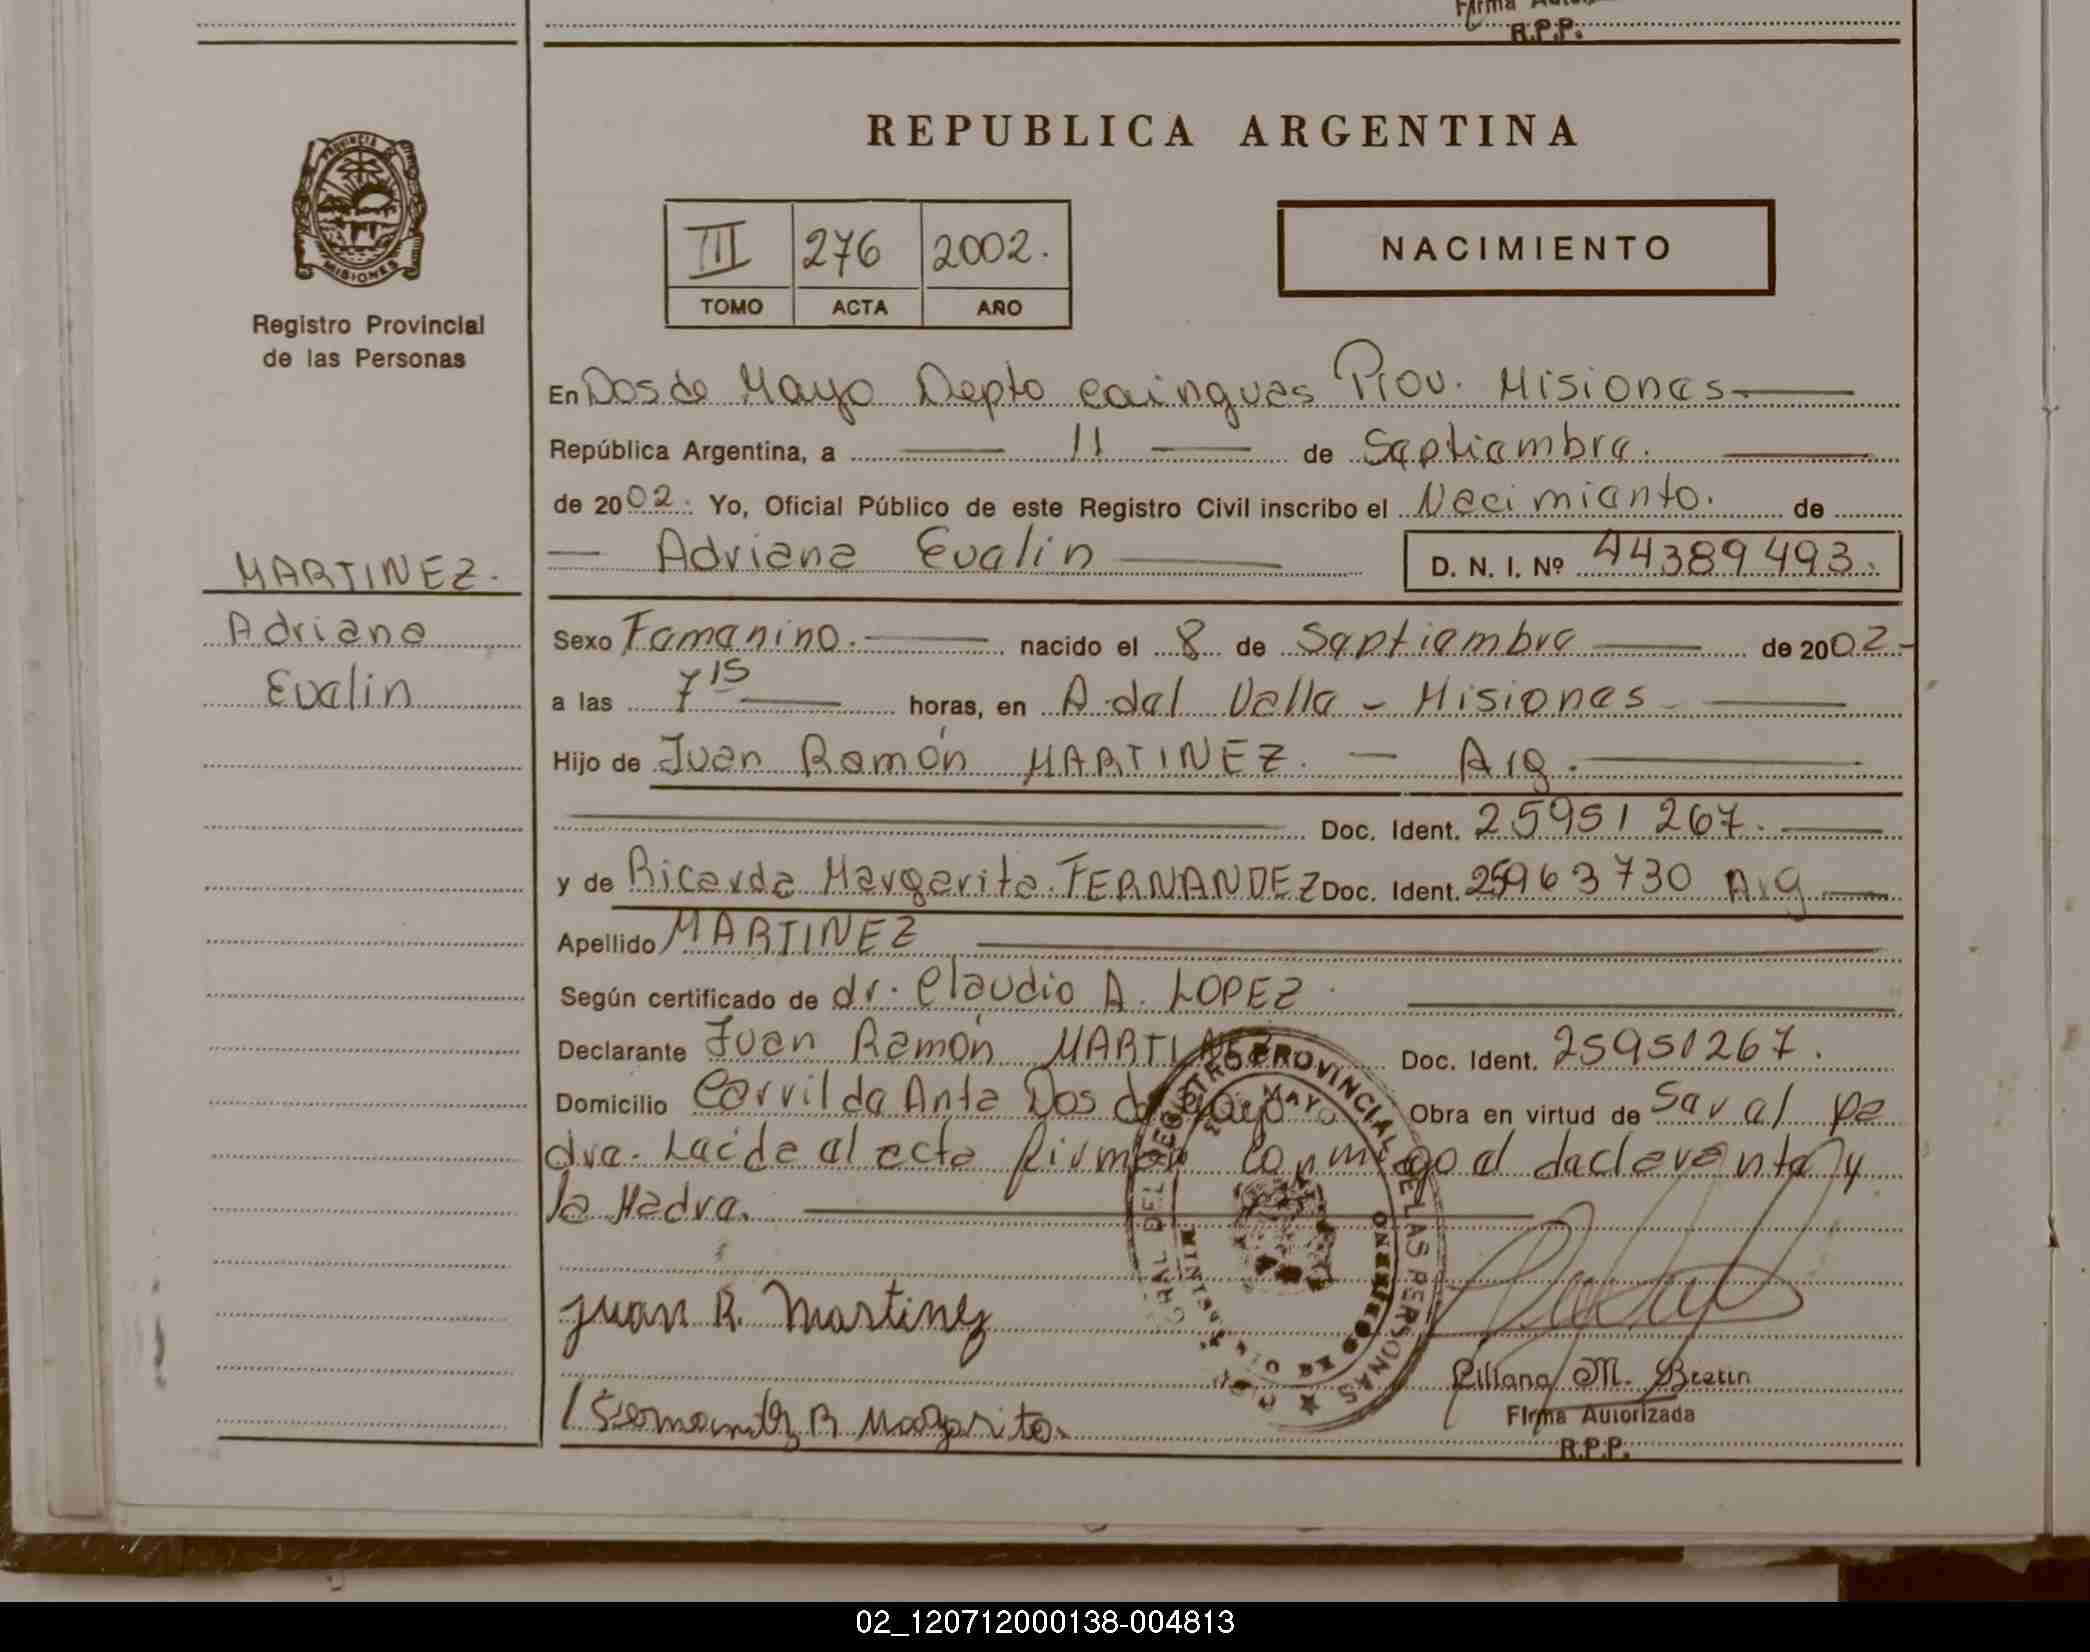 Firma
R.P.P.
REPUBLICA ARGENTINA
PROVINCIA DE
MISIONES
Registro Provincial
de las Personas
III 276 2002.
TOMO ACTA AÑO
NACIMIENTO
En Dos de Mayo Depto Cainguas Prov. Misiones
República Argentina, a 11 de Septiembre.
de 2002. Yo, Oficial Público de este Registro Civil inscribo el Nacimiento. de
Adriana Evelin D. N. I. Nº 44389493.
MARTINEZ.
Adriana
Evelin
Sexo Femenino. nacido el 8 de Septiembre de 2002-
a las 7 15 horas, en A. del Valle - Misiones
Hijo de Juan Ramón MARTINEZ. - Arg.
Doc. Ident. 25951267.
y de Ricarda Margarita FERNANDEZ Doc. Ident. 25963730 Arg
Apellido MARTINEZ
Según certificado de dr. Claudio A. LOPEZ
Declarante Juan Ramón MARTINEZ Doc. Ident. 25951267.
Domicilio Carril de Anta Dos de Mayo Obra en virtud de Ser el pa
dre. Leída el acta firman conmigo el declarante y
la Madre.
REGISTRO PROVINCIAL DE LAS PERSONAS
MAYO
Juan R. Martinez
Liliana M. Bretin
Fernandez R Margarita.
Firma Autorizada
R.P.P.
02_120712000138-004813